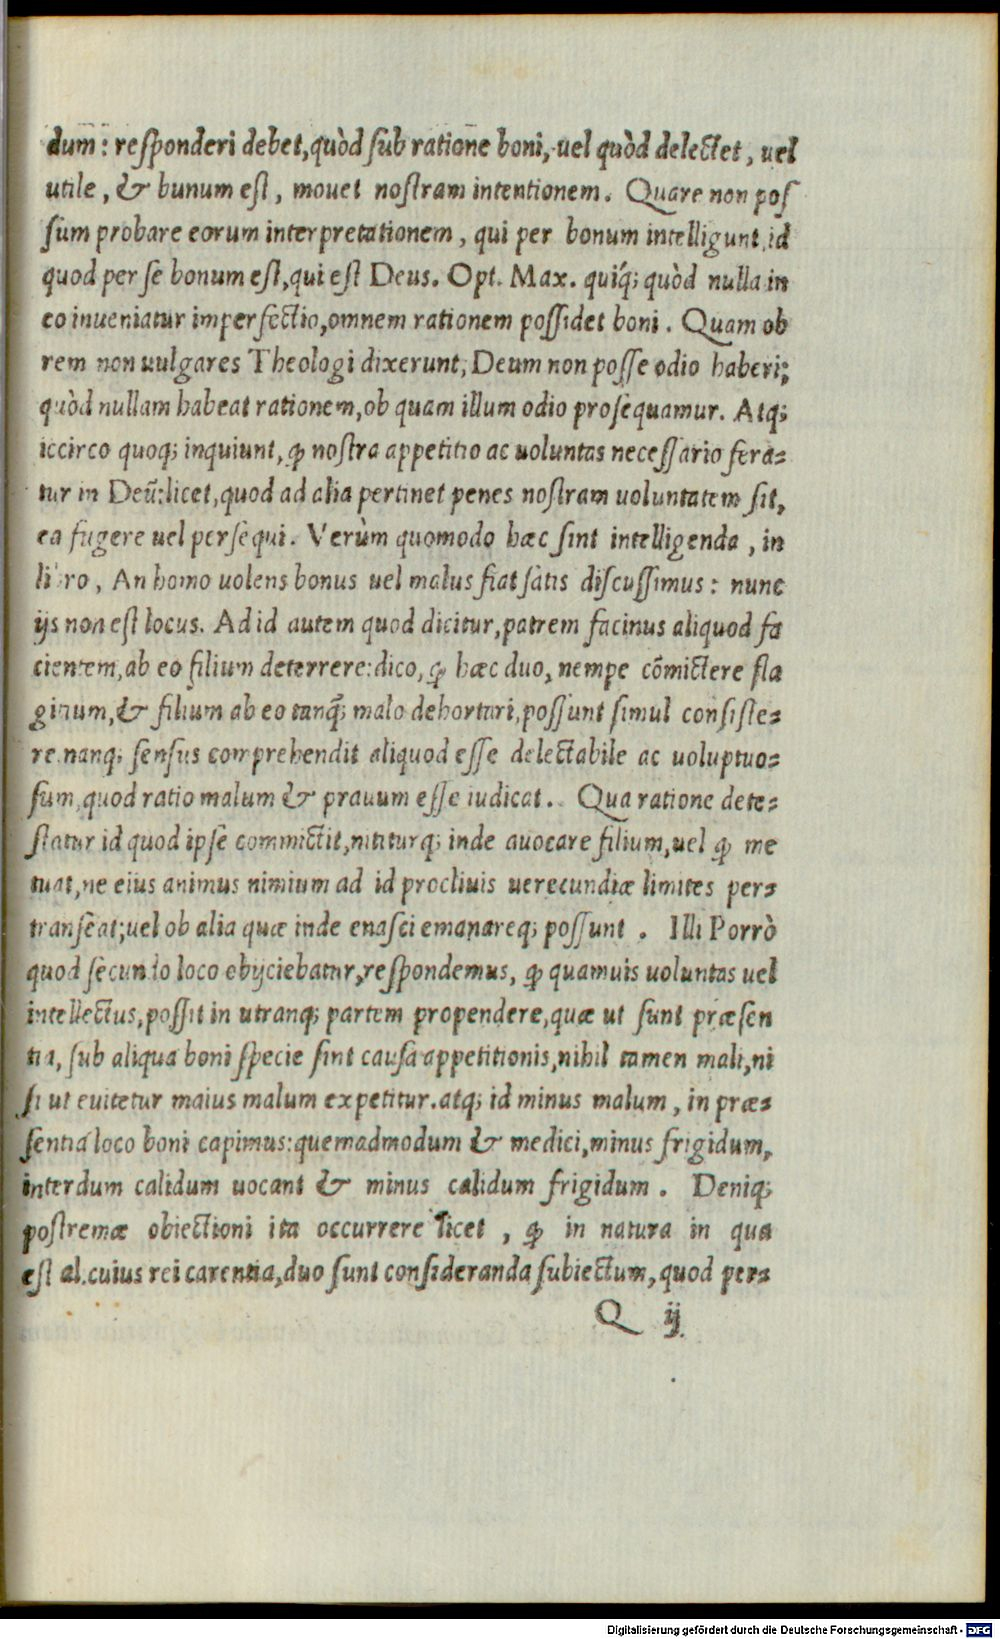 dum: reſponderi debet,quòd ſub ratione boni, uel quòd delectet, uel
utile, & bunum eſt, mouet noſtram intentionem. Quare non poſ
ſum probare eorum interpretationem, qui per bonum intelligunt id
quod per ſe bonum eſt,qui eſt Deus. Opt. Max. quíq; quòd nulla in
eo inueniatur imperfectio,omnem rationem poſſidet boni. Quam ob
rem non uulgares Theologi dixerunt, Deum non poſſe odio haberi;
quòd nullam habeat rationem,ob quam illum odio proſequamur. Atq;
iccirco quoq; inquiunt, ꝙ noſtra appetitio ac uoluntas neceſſario fera-
tur in Deū:licet,quod ad alia pertinet penes noſtram uoluntatem ſit,
ea fugere uel perſequi. Verùm quomodo hæc ſint intelligenda, in
libro, An homo uolens bonus uel malus fiat ſatis diſcuſſimus: nunc
ijs non eſt locus. Ad id autem quod dicitur,patrem facinus aliquod fa
cientem,ab eo filium deterrere:dico, ꝙ hæc duo, nempe cōmictere fla
gitium,& filium ab eo tanq̄; malo dehortari,poſſunt ſimul conſiſte-
re.nanq; ſenſus comprehendit aliquod eſſe delectabile ac uoluptuo-
ſum,quod ratio malum & prauum eſſe iudicat. Qua ratione dete-
ſtatur id quod ipſe commictit,nititurq; inde auocare filium,uel ꝙ me
tuat,ne eius animus nimium ad id procliuis uerecundiæ limites per-
tranſeat;uel ob alia quæ inde enaſci emanareq; poſſunt. Illi Porrò
quod ſecundo loco obijciebatur,reſpondemus, ꝙ quamuis uoluntas uel
intellectus,poſſit in utranq; partem propendere,quæ ut ſunt præſen
tia, ſub aliqua boni ſpecie ſint cauſa appetitionis,nihil tamen mali,ni
ſi ut euitetur maius malum expetitur.atq; id minus malum, in præ-
ſentia loco boni capimus:quemadmodum & medici,minus frigidum,
interdum calidum uocant & minus calidum frigidum. Deniq;
poſtremæ obiectioni ita occurrere licet, ꝙ in natura in qua
eſt alicuius rei carentia,duo ſunt conſideranda ſubiectum,quod per-
Q ij.
Digitalisierung gefördert durch die Deutsche Forschungsgemeinschaft - DFG